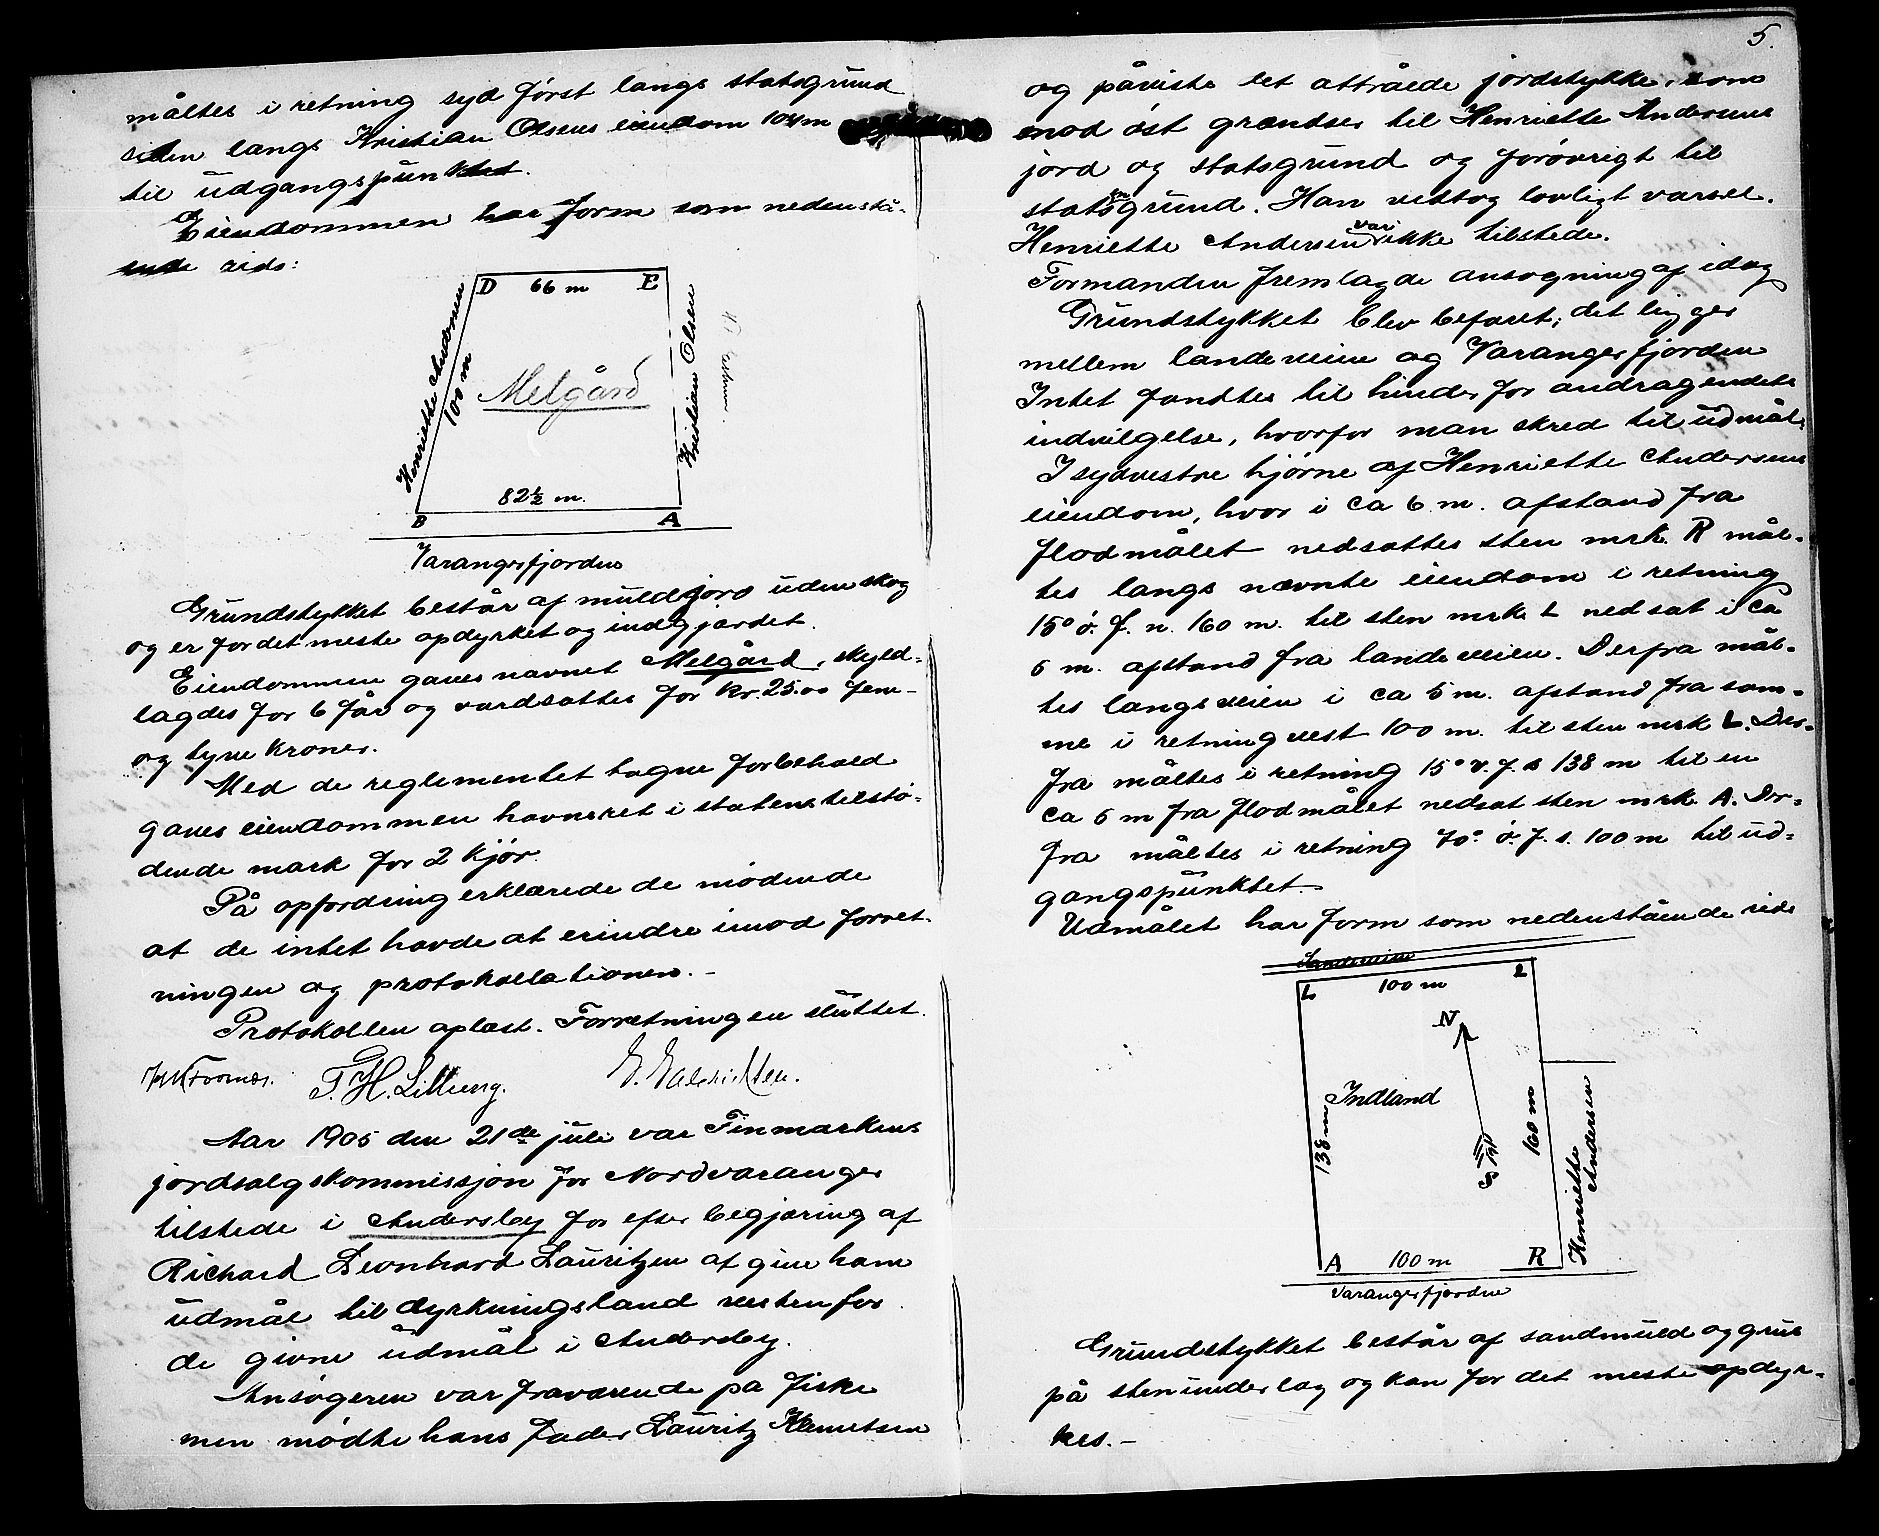 måltes i retning syd først langs statsgrund
siden langs Kristian Olsens eiendom 104 m
til udgangspunktet.
Eiendommen har form som nedenstå-
ende rids:
D 66 m E
Henriette Andersen
100 m
Melgård
Kristian Olsen
82½ m.
B A
Varangerfjorden
Grundstykket består af muldjord uden skog
og er for det meste opdyrket og indgjærdet.
Eiendommen gaves navnet Melgård, skyld-
lagdes for 6 før og værdsattes for kr. 25.00 fem-
og tyve kroner.
Med de reglementet tagne forbehold
gaves eiendommen havneret i statens tilstø-
dende mark for 2 kjør.
På opfordring erklærede de mødende
at de intet havde at erindre imod forret-
ningen og protokollationen. -
Protokollen oplæst. Forretningen sluttet.
T. H. Lillieng.
Aar 1905 den 21de juli var Finmarkens
jordsalgskommissjon for Nordvaranger
tilstede i Andersby for efter begjæring af
Richard Leonhard Lauritzen at give ham
udmål til dyrkningsland vestenfor
de givne udmål i Andersby.
Ansøgeren var fraværende på fiske
men mødte hans fader Lauritz Klemetsen
5.
og påviste det attråede jordstykke, som
mod øst grændser til Henriette Andersens
jord og statsgrund og forøvrigt til
statsgrund. Han vedtog lovligt varsel.
Henriette Andersen var ikke tilstede.
Formanden fremlagde ansøgning af idag
Grundstykket blev befaret; det ligger
mellem landeveien og Varangerfjorden
Intet fandtes til hinder for andragendets
indvilgelse, hvorfor man skred til udmål.
I sydvestre hjørne af Henriette Andersens
eiendom, hvor i ca 6 m. afstand fra
flodmålet nedsattes sten mrk. R mål-
tes langs nævnte eiendom i retning
15° ø. f. n. 160 m. til sten mrk. L nedsat i ca
5 m. afstand fra landeveien. Derfra mål-
tes langs veien i ca 5 m. afstand fra sam-
me i retning vest 100 m. til sten mrk L. Der-
fra måltes i retning 15° v. f. s 138 m til en
ca 6 m fra flodmålet nedsat sten mrk. A. Der-
fra måltes i retning 70° ø. f. s. 100 m til ud-
gangspunktet. -
Udmålet har form som nedenstående rids
Landeveien
L 100 m L
N
Indland
138 m
160 m
Henriette
Andersen
A 100 m R
Varangerfjorden
Grundstykket består af sandmuld og grus
på stenunderlag og kan for det meste opdyr-
kes. -